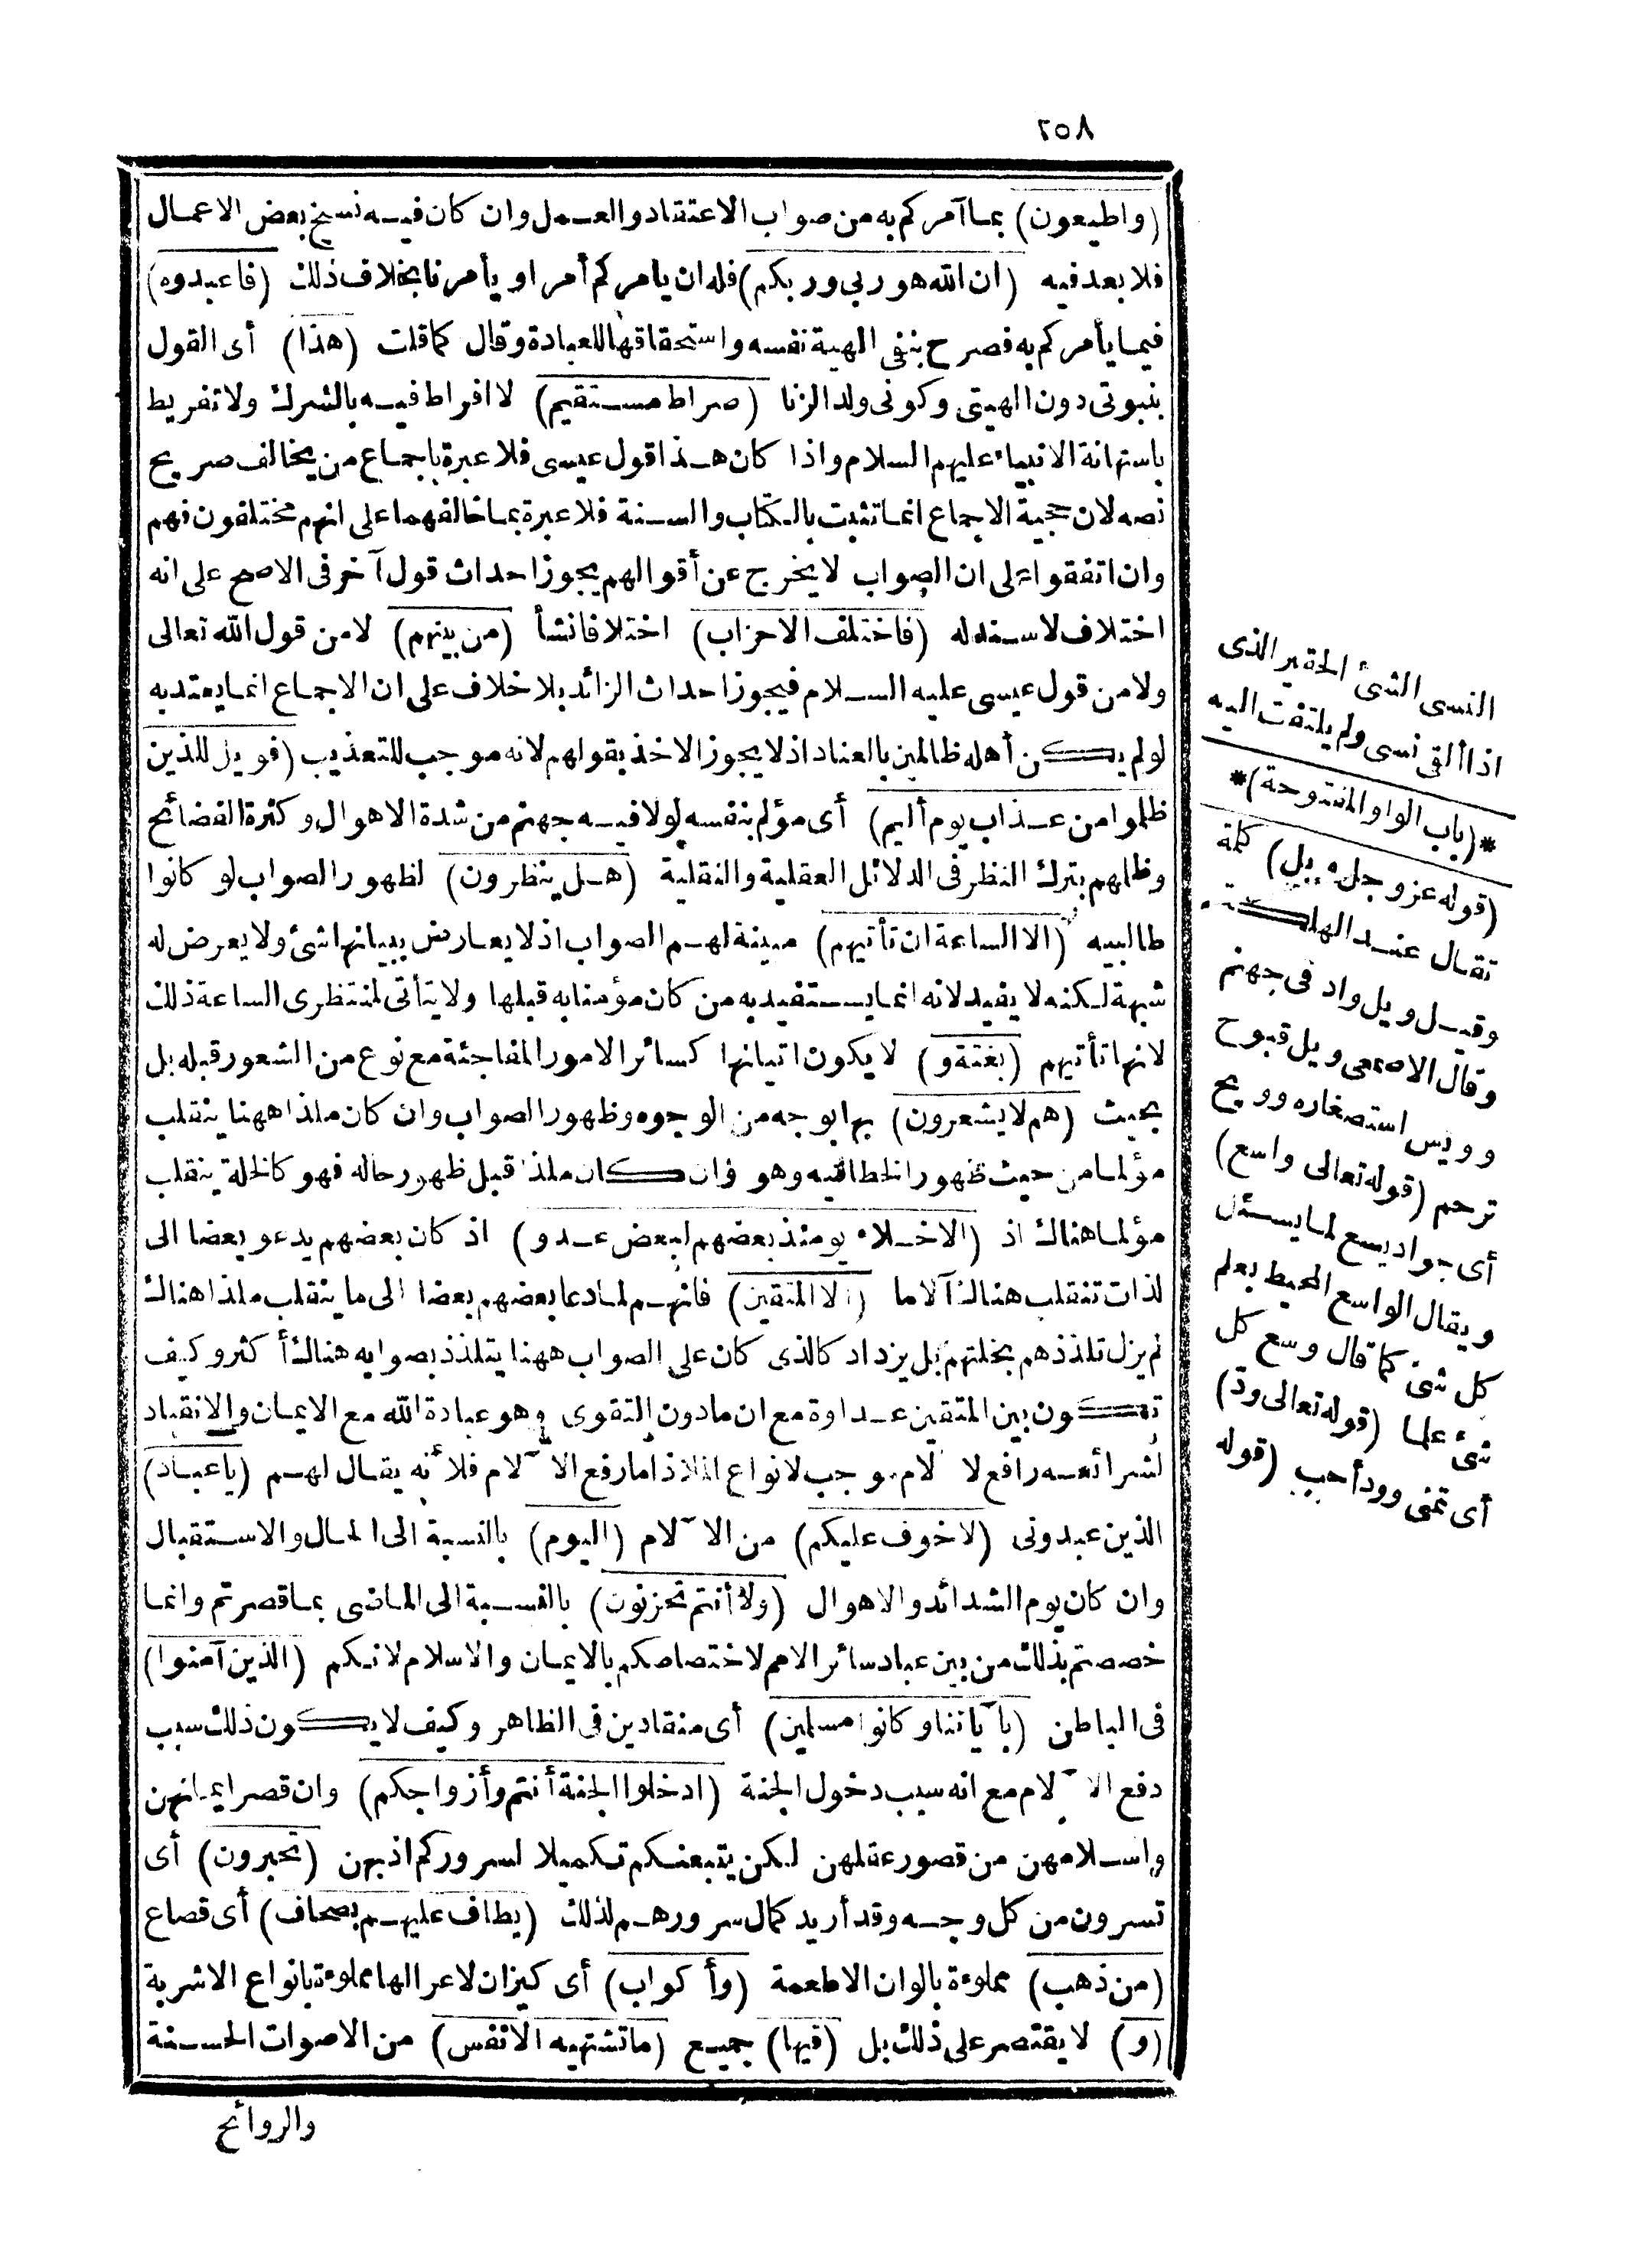 ٢٥٨
(واطيعون) بما آمركم به من صواب الاعتقاد والعمل وان كان فيه نسخ بعض الاعمال
فلا بعد فيه (ان الله هو ربي وربكم) فله ان يامركم أمرا ويأمرنا بخلاف ذلك (فاعبدوه)
فيما يأمركم به فصرح بنفى الهية نفسه واستحقاقها للعبادة وقال كما قلت (هذا) أى القول
بنبوتى دون الهيتى وكونى ولد الزنا (صراط مستقيم) لا افراط فيه بالشرك ولا تفريط
باستهانة الانبياء عليهم السلام واذا كان هذا قول عيسى فلا عبرة باجماع من يخالف صريح
نصه لان حجية الاجماع انما تثبت بالكتاب والسنة فلا عبرة بما خالفهما على انهم مختلفون فهم
وان اتفقوا على ان الصواب لا يخرج عن أقوالهم يجوز احداث قول آخر فى الاصح على انه
اختلاف لا سند له (فاختلف الاحزاب) اختلافا نشأ (من بينهم) لا من قول الله تعالى
ولا من قول عيسى عليه السلام فيجوز احداث الزائد بلا خلاف على ان الاجماع انما يعتد به
لو لم يكن أهله ظالمين بالعناد اذ لا يجوز الاخذ بقولهم لانه موجب للتعذيب (فويل للذين
ظلموا من عذاب يوم أليم) أى مؤلم بنفسه لولا فيه جهنم من شدة الاهوال وكثرة الفضائح
وظلمهم بترك النظر فى الدلائل العقلية والنقلية (هل ينظرون) لظهور الصواب لو كانوا
طالبيه (الا الساعة ان تأتيهم) مبينة لهم الصواب اذ لا يعارض ببيانها شئ ولا يعرض له
شبهة لكنه لا يفيد لانه انما يستفيد به من كان مؤمنا به قبلها ولا يتأتى لمنتظرى الساعة ذلك
لانها تأتيهم (بغتة و) لا يكون اتيانها كسائر الامور المفاجئة مع نوع من الشعور قبله بل
بحيث (هم لا يشعرون) بها بوجه من الوجوه وظهور الصواب وان كان ملذا ههنا ينقلب
مؤلما من حيث ظهور الخطا فيه وهو وان كان ملذا قبل ظهور حاله فهو كالخلة ينقلب
مؤلما هناك اذ (الاخلاء يومئذ بعضهم لبعض عدو) اذ كان بعضهم يدعو بعضا الى
لذات تنقلب هناك آلاما (الا المتقين) فانهم لما دعا بعضهم بعضا الى ما ينقلب ملذا هناك
لم يزل تلذذهم بخلتهم بل يزداد كالذى كان على الصواب ههنا يتلذذ بصوابه هناك أكثر وكيف
تكون بين المتقين عداوة مع ان ما دون التقوى وهو عبادة الله مع الايمان والانقياد
لشرائعه رافع للآلام موجب لانواع الملاذ اما رفع الآلام فلأنه يقال لهم (يا عباد)
الذين عبدونى (لا خوف عليكم) من الآلام (اليوم) بالنسبة الى الحال والاستقبال
وان كان يوم الشدائد والاهوال (ولا أنتم تحزنون) بالنسبة الى الماضى بما قصرتم وانما
خصصتم بذلك من بين عباد سائر الامم لاختصاصكم بالايمان والاسلام لانكم (الذين آمنوا)
فى الباطن (بآياتنا وكانوا مسلمين) أى منقادين فى الظاهر وكيف لا يكون ذلك سبب
دفع الآلام مع انه سبب دخول الجنة (ادخلوا الجنة أنتم وأزواجكم) وان قصر ايمانهن
واسلامهن من قصور عقلهن لكن يتبعنكم تكميلا لسروركم اذ بهن (تحبرون) أى
تسرون من كل وجه وقد أريد كمال سرورهم لذلك (يطاف عليهم بصحاف) أى قصاع
(من ذهب) مملوءة بالوان الاطعمة (وأكواب) أى كيزان لا عرا لها مملوءة بانواع الاشربة
(و) لا يقتصر على ذلك بل (فيها) جميع (ما تشتهيه الانفس) من الاصوات الحسنة
والروائح
النسى الشئ الحقير الذى
اذا ألقى نسى ولم يلتفت اليه
*(باب الواو المفتوحة)*
(قوله عز وجل ويل) كلمة
تقال عند الهلكة
وقيل ويل واد فى جهنم
وقال الاصمعى ويل قبوح
وويس استصغار وويح
ترحم (قوله تعالى واسع)
أى جواد يسع لما يسئل
ويقال الواسع المحيط بعلم
كل شئ كما قال وسع كل
شئ علما (قوله تعالى ود)
أى تمنى وود أحب (قوله